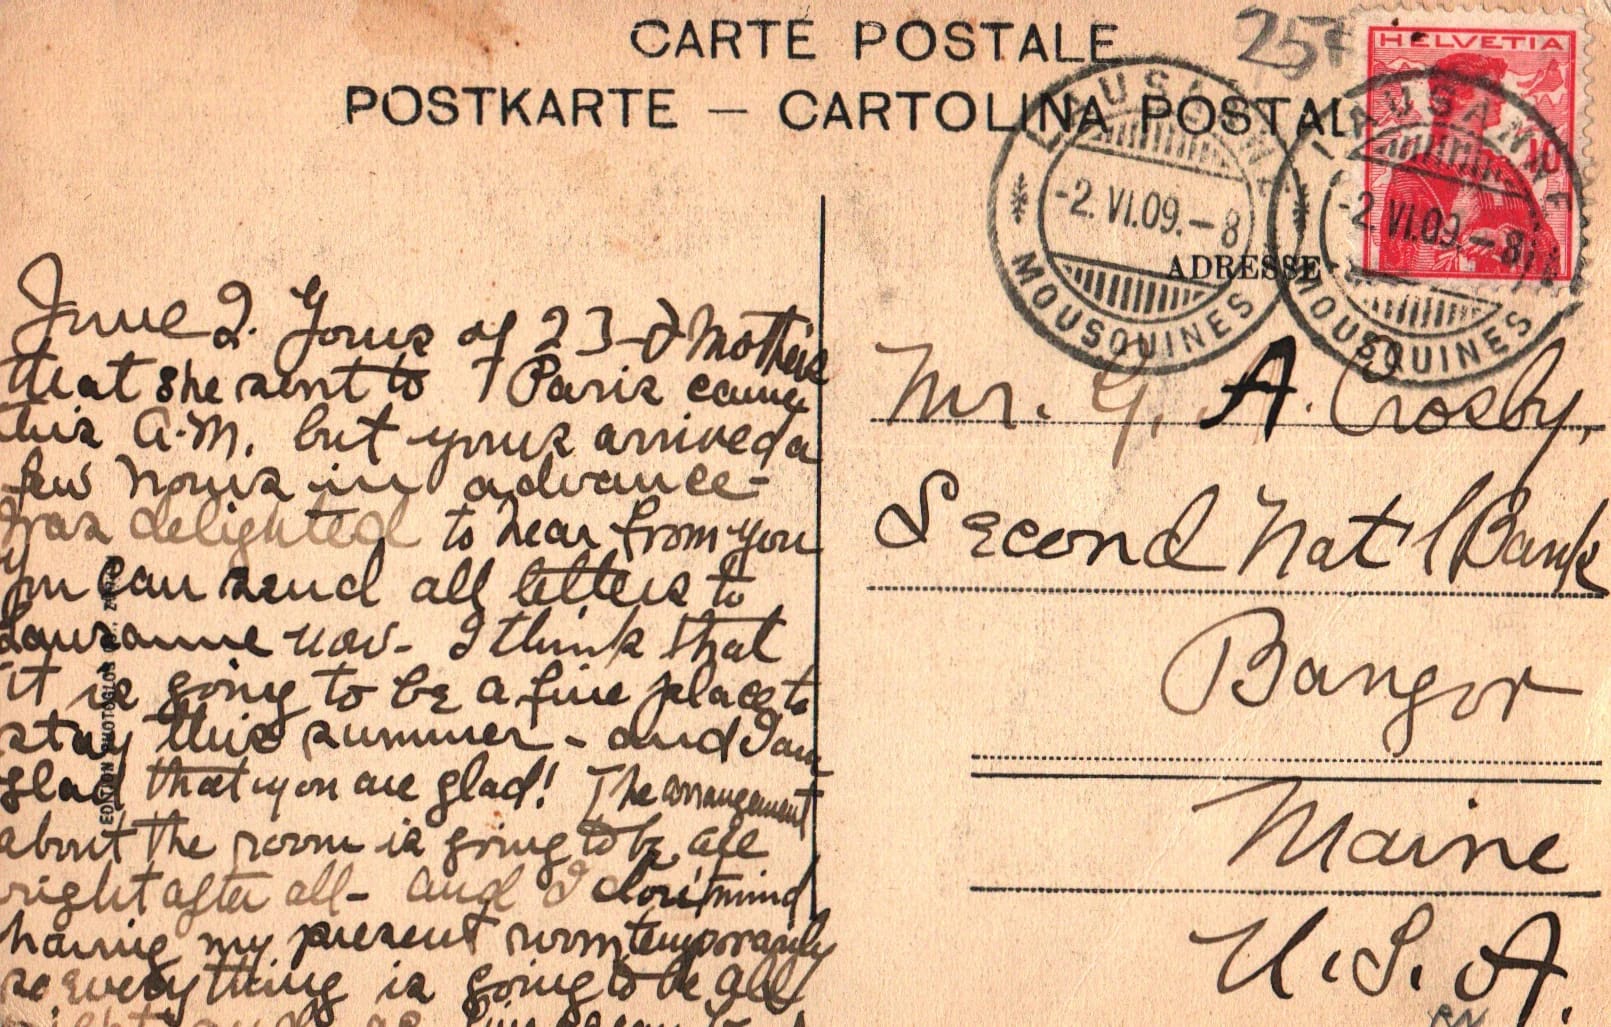 CARTE POSTALE
POSTKARTE — CARTOLINA POSTAL
25¢
HELVETIA
10
LAUSANNE
-2.VI.09.-8
MOUSQUINES
LAUSANNE
-2.VI.09.-8
MOUSQUINES
ADRESSE
June 2. Yours of 23-& Mother's
that she sent to Paris came
this A.M. but yours arrived a
few hours in advance-
Was delighted to hear from you
You can send all letters to
Lausanne now- I think that
it is going to be a fine place to
stay this summer - and I am
glad that you are glad! The arrangement
about the room is going to be all
right after all- and I don't mind
having my present room temporarily
so everything is going to be all
right and
EDITION PHOTOGLOB
Mr. G. A. Crosby,
Second Nat'l Bank
Bangor
Maine
U.S.A.